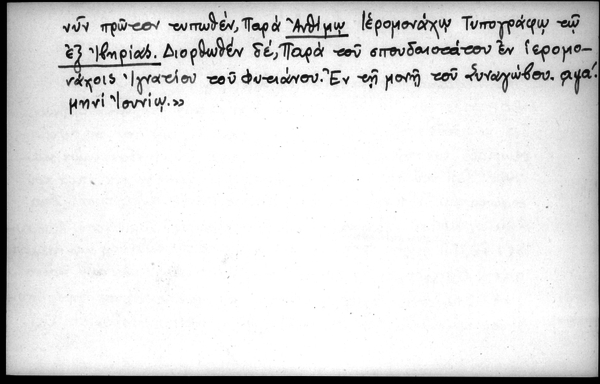 νῦν πρῶτον τυπωθέν, Παρά Ἀνθίμῳ Ἱερομονάχῳ Τυπογράφῳ τῷ
ἐξ Ἰβηρίας. Διορθωθέν δέ, Παρά τοῦ σπουδαιοτάτου ἐν ἱερομο-
νάχοις Ἰγνατίου τοῦ Φυτιάνου. Ἐν τῇ μονῇ τοῦ Συναγώβου. αψα΄.
μηνί Ἰουνίῳ.»